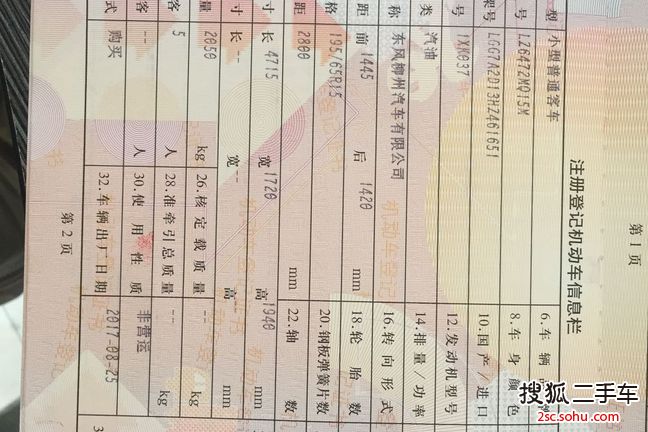 第1页
注册登记机动车信息栏
型 小型普通客车 6.车辆
号 LZ6472MQ15M 8.车身颜色
架号 LGG7A2D13HZ461651 10.国产/进口
号 1XH037 12.发动机型号
类 汽油 14.排量/功率
称 东风柳州汽车有限公司 16.转向形式
距 前 1445 后 1420 mm 18.轮胎数
格 195/65R15 20.钢板弹簧片数
距 2800 mm 22.轴数
寸 长 4715 宽 1720 高 1940 mm
寸 长 -- 宽 -- 高 -- mm
量 2050 kg 26.核定载质量 -- kg
客 5 人 28.准牵引总质量 -- kg
客 -- 人 30.使用性质 非营运
式 购买 32.车辆出厂日期 2017-08-25
第2页
搜狐二手车
2sc.sohu.com